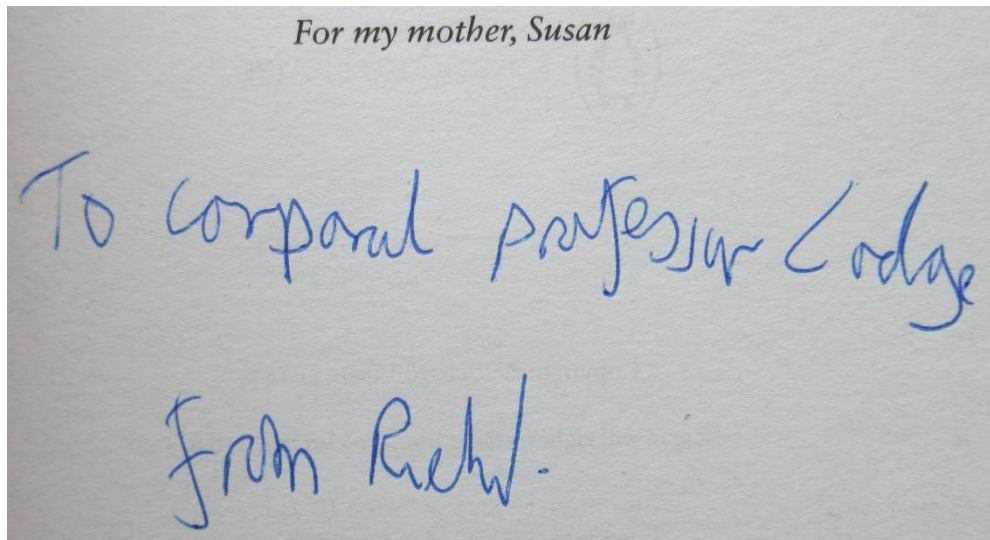 For my mother, Susan
To corporal professor Lodge
From Richd.